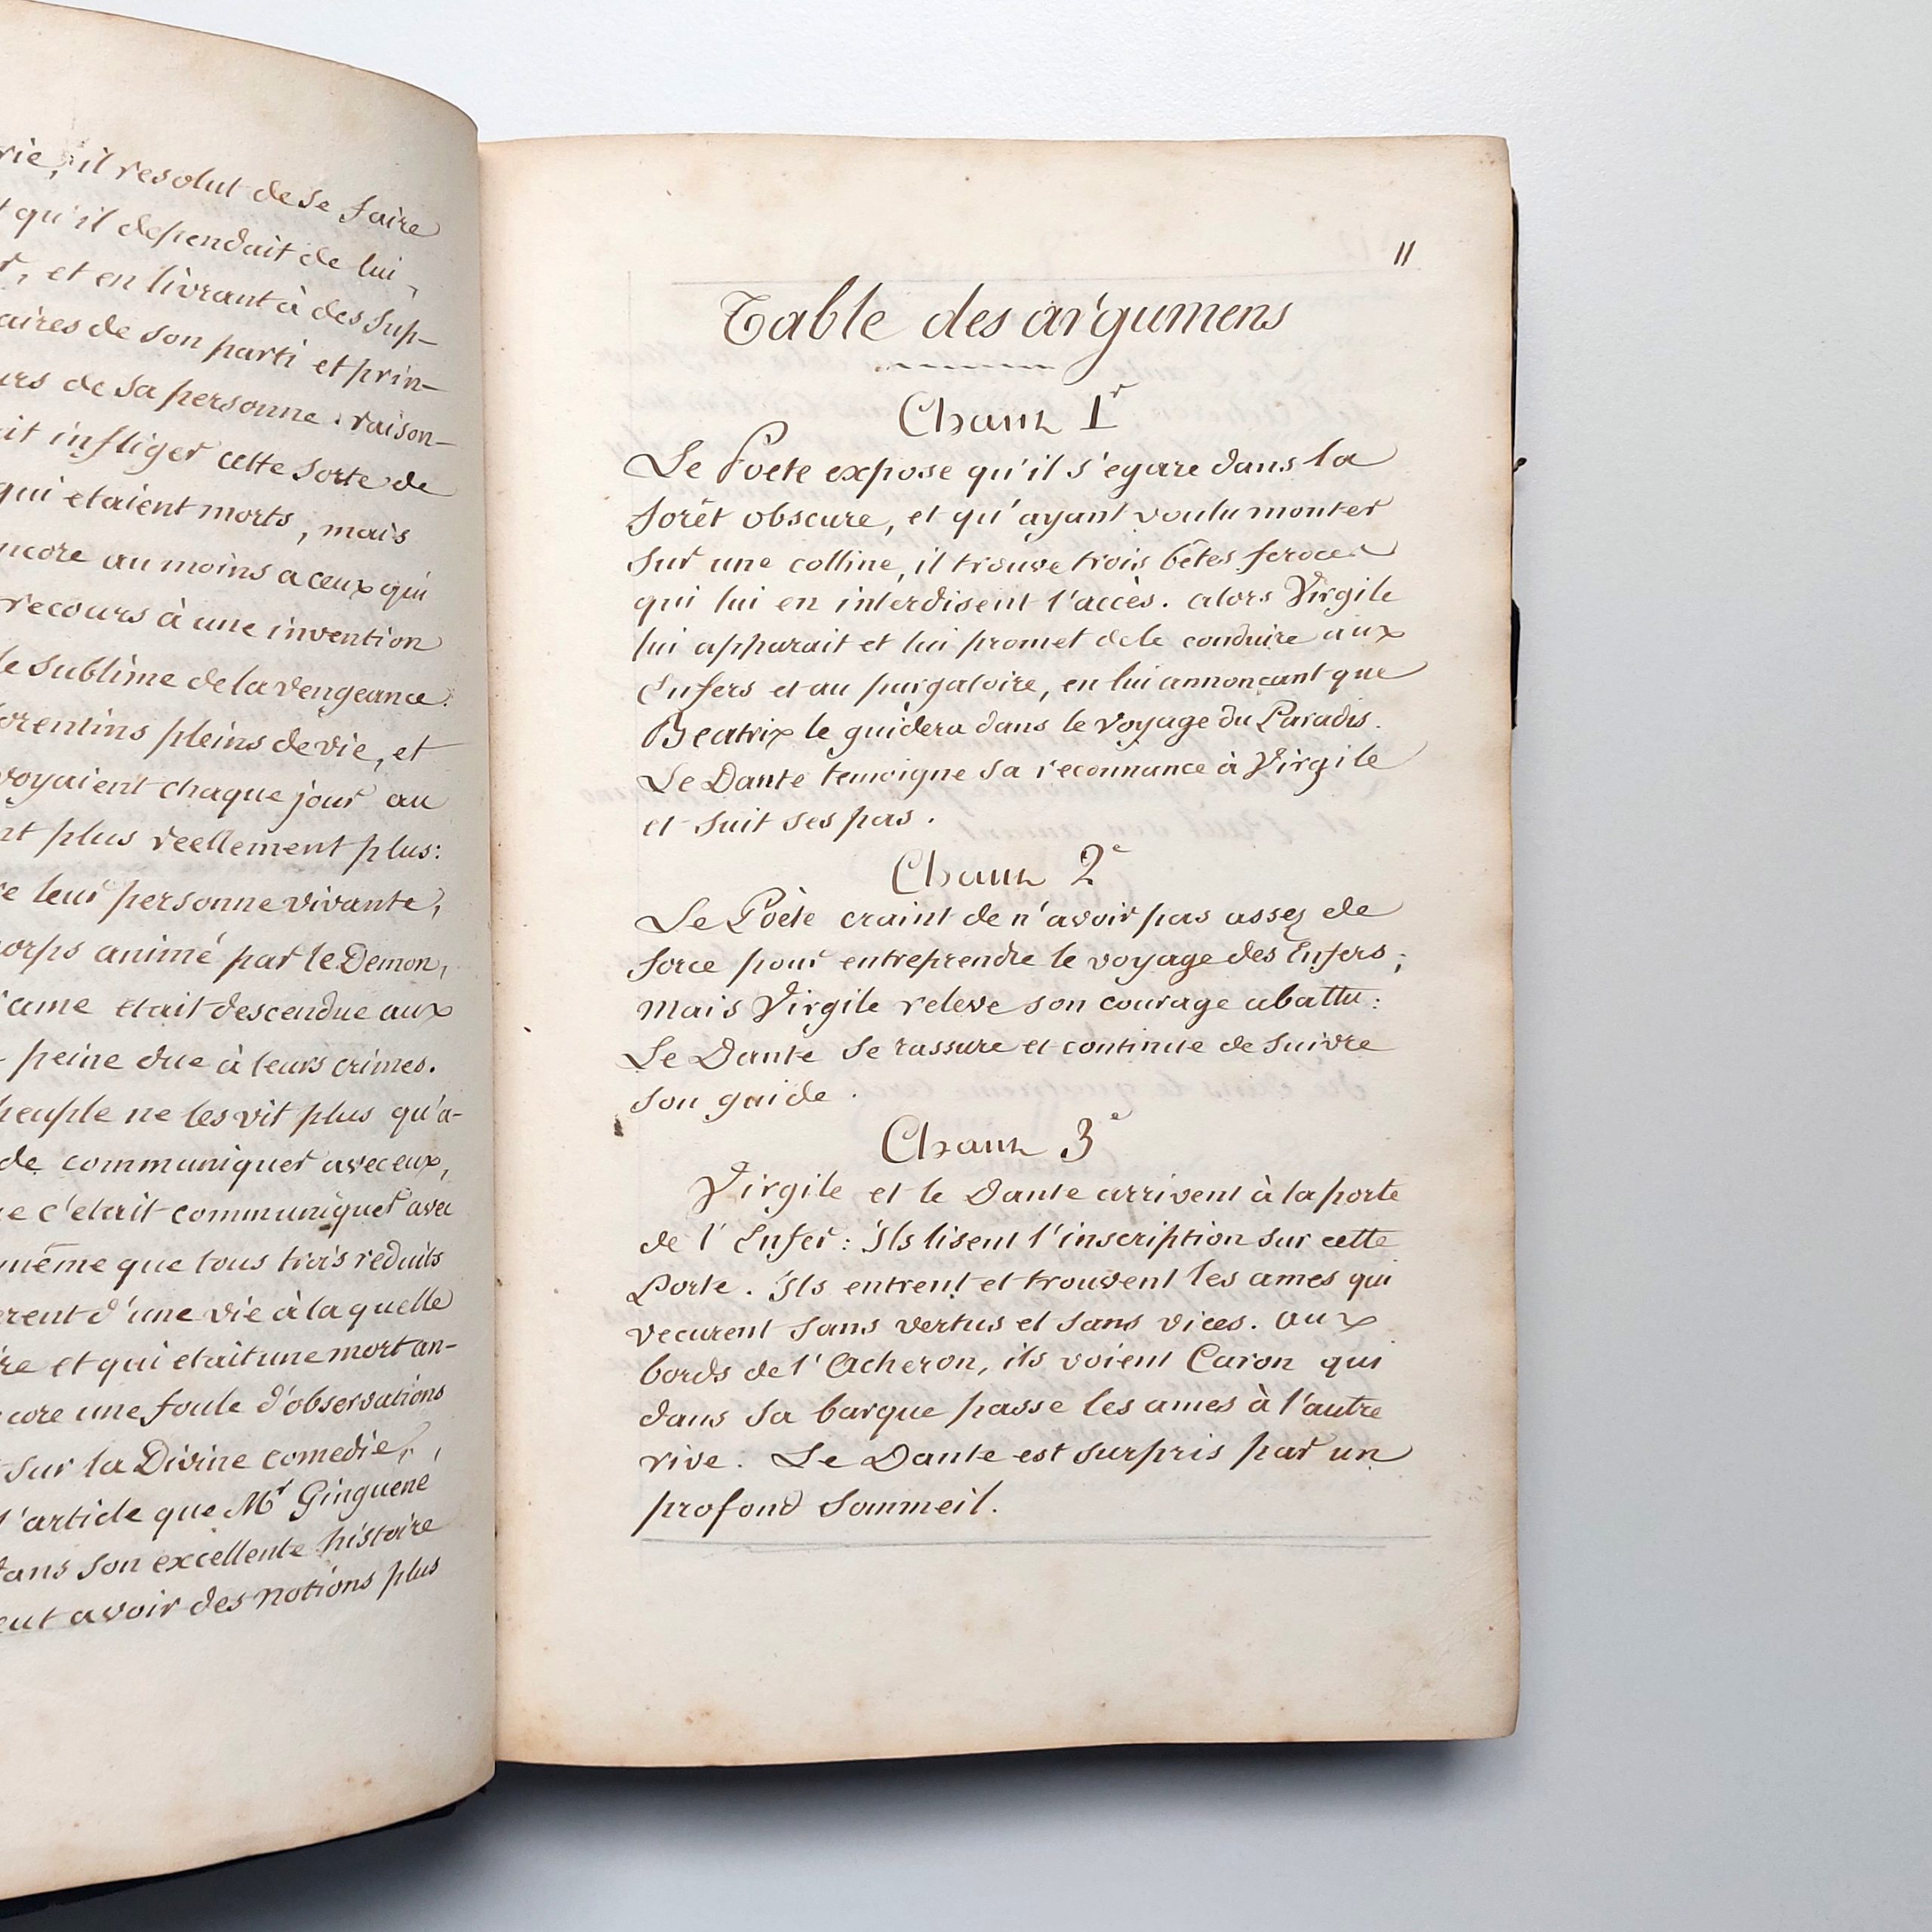 rie, il resolut de se faire
qu'il dependait de lui,
et en livrant à des sup-
aires de son parti et prin-
urs de sa personne. raison-
it infliger cette sorte de
qui etaient morts, mais
ncore au moins a ceux qui
recours à une invention
le sublime de la vengeance.
orentins pleins de vie, et
voyaient chaque jour au
nt plus reellement plus:
e leur personne vivante,
orps animé par le Demon,
'ame etait descendue aux
peine due à leurs crimes.
peuple ne les vit plus qu'a-
de communiquer avec eux,
e c'etait communiquer avec
même que tous trois reduits
erent d'une vie à la quelle
re et qui etait une mort an-
core une foule d'observations
sur la Divine comedie,
l'article que Mr Ginguene
dans son excellente histoire
eut avoir des notions plus
11
Table des argumens
Chant 1r
Le Poete expose qu'il s'egare dans la
forêt obscure, et qu'ayant voulu monter
sur une colline, il trouve trois bêtes feroces
qui lui en interdisent l'accès. alors Virgile
lui apparait et lui promet de le conduire aux
Enfers et au purgatoire, en lui annonçant que
Beatrix le guidera dans le voyage du Paradis.
Le Dante temoigne sa reconnance à Virgile
et suit ses pas.
Chant 2e
Le Poëte craint de n'avoir pas assez de
force pour entreprendre le voyage des Enfers;
mais Virgile releve son courage abattu:
Le Dante se rassure et continue de suivre
son guide.
Chant 3e
Virgile et le Dante arrivent à la porte
de l'Enfer: Ils lisent l'inscription sur cette
Porte. Ils entrent et trouvent les ames qui
vecurent sans vertus et sans vices. aux
bords de l'Acheron, ils voient Caron qui
dans sa barque passe les ames à l'autre
rive. Le Dante est surpris par un
profond sommeil.